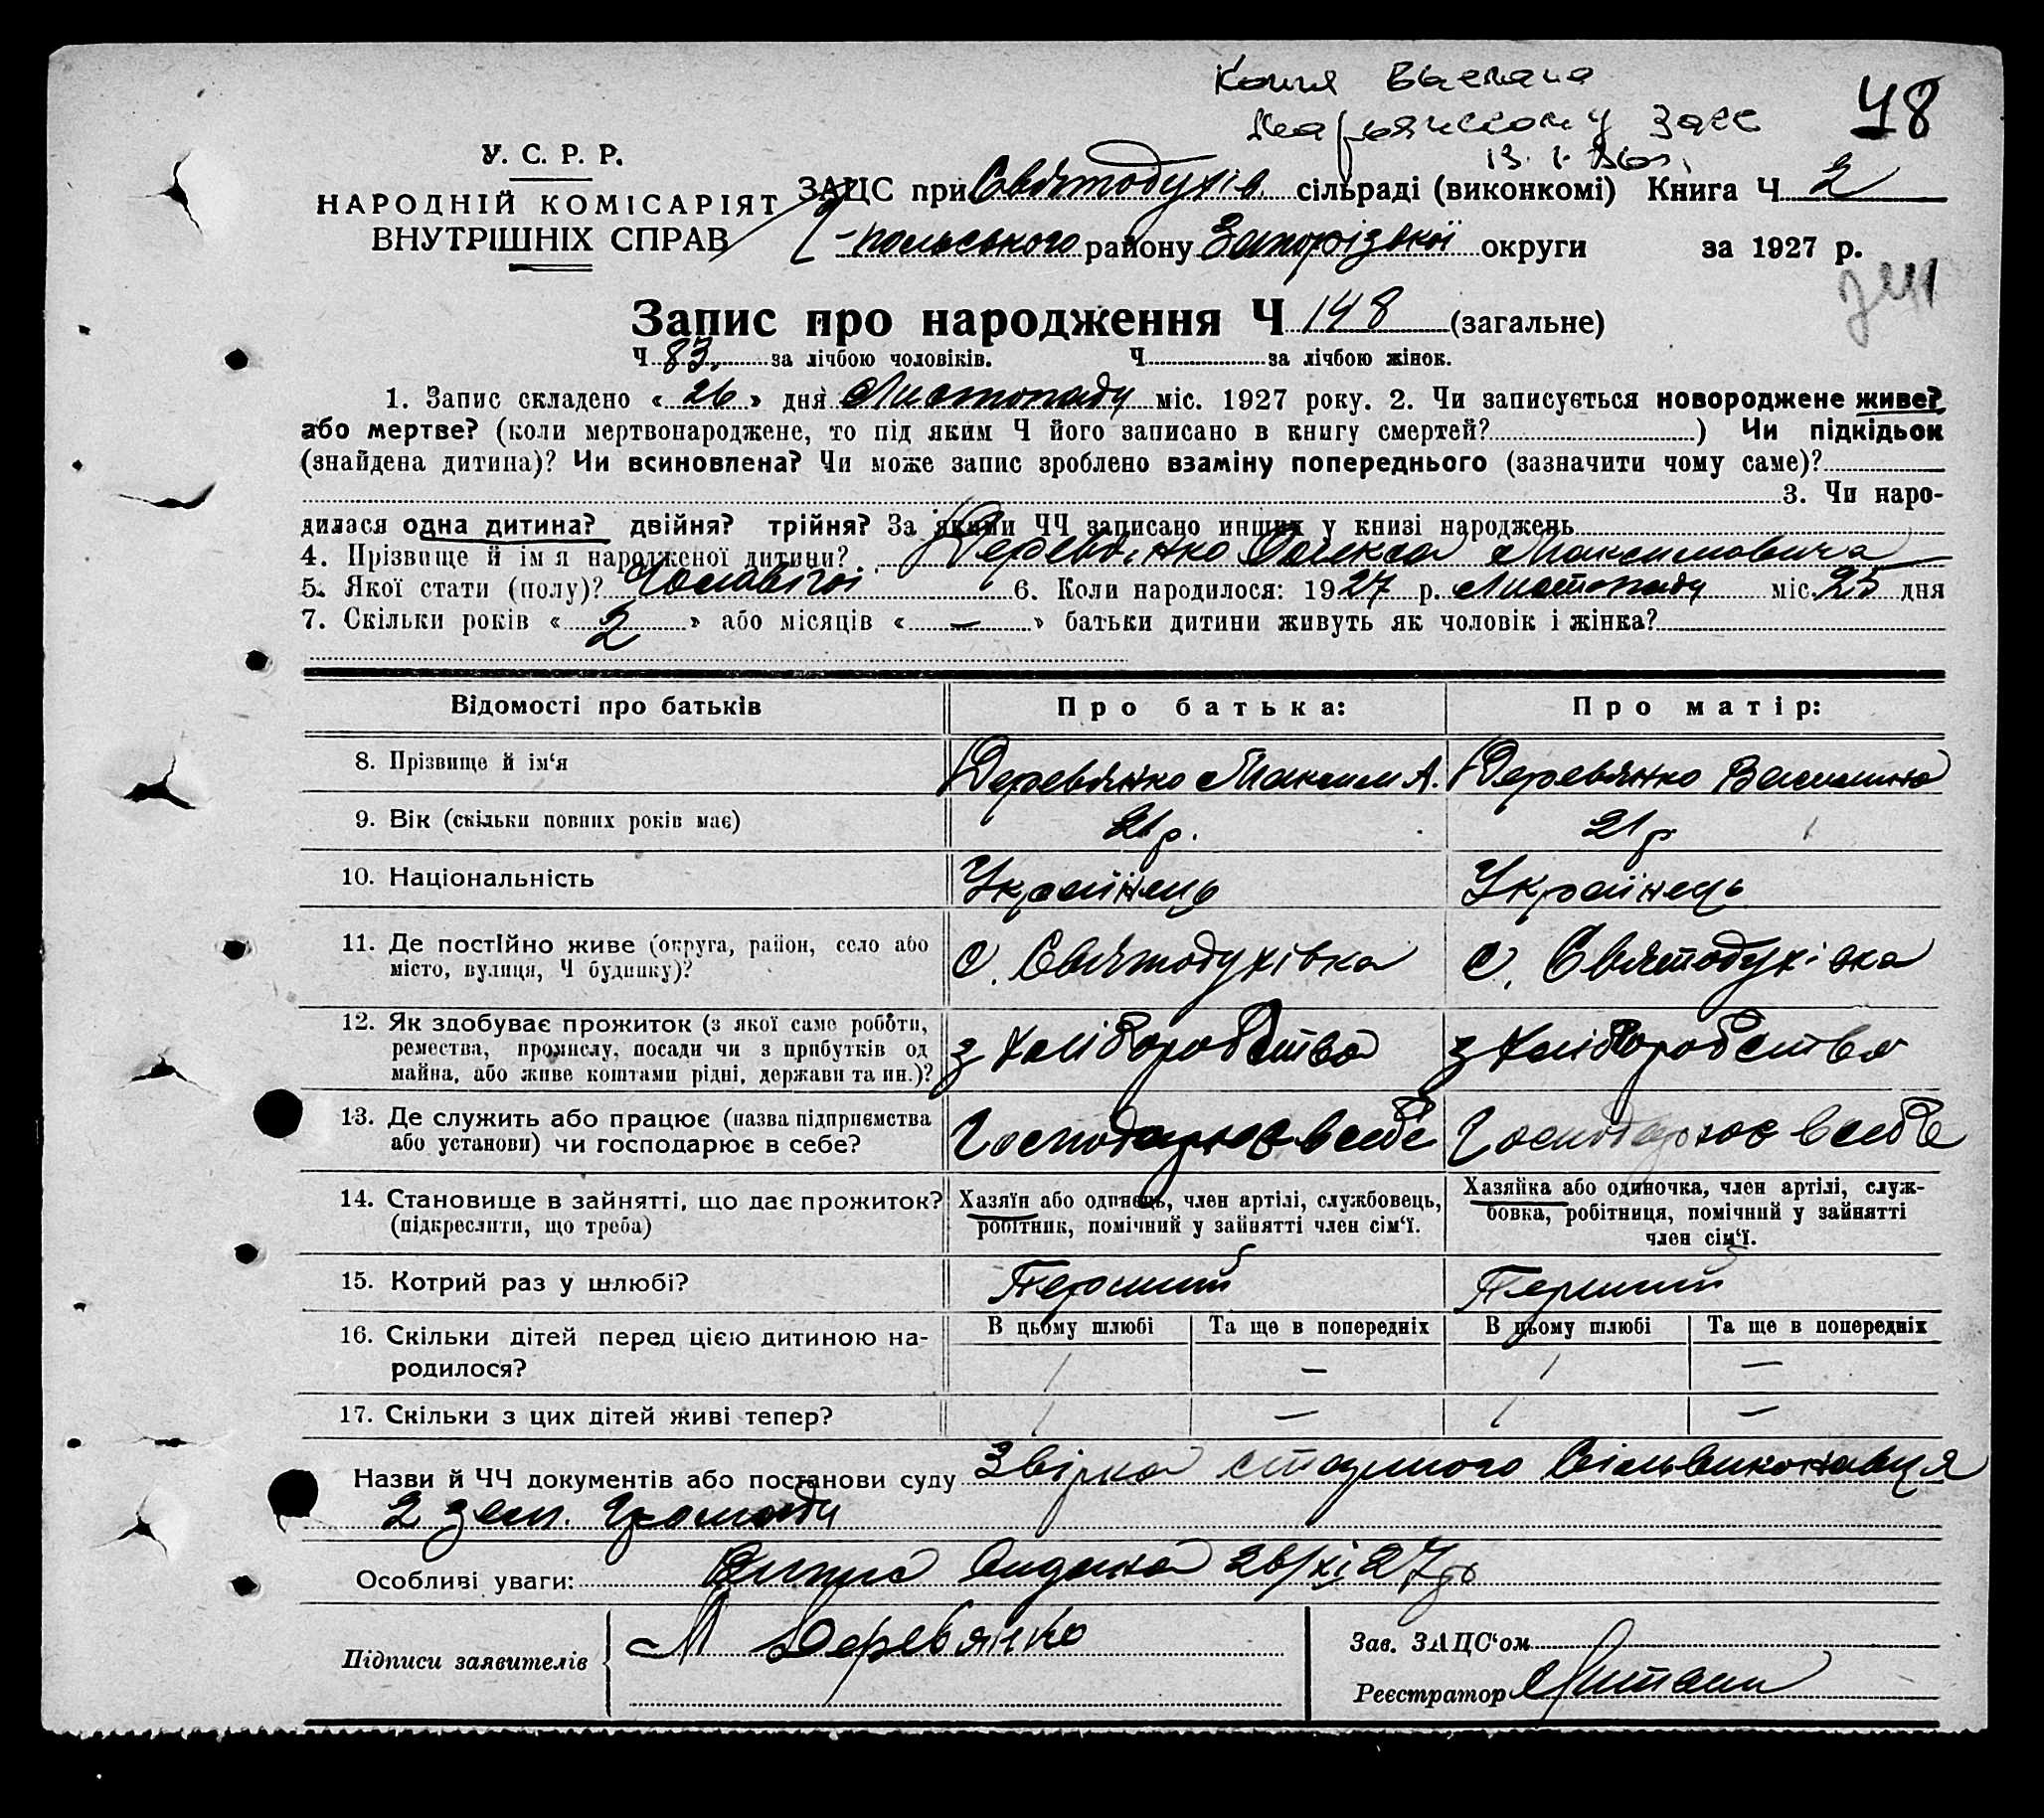 Копія Выслана
Марьянскому Загс
48
13. I.
У. С. Р. Р.
НАРОДНІЙ КОМІСАРІЯТ
ВНУТРІШНІХ СПРАВ
ЗАЦС при Святодухів. сільраді (виконкомі) Книга Ч 2
-польського району Запорізької округи за 1927 р.
Запис про народження Ч 148 (загальне)
Ч 83. за лічбою чоловіків. Ч за лічбою жінок.
1. Запис складено « 26 » дня Листопаду міс. 1927 року. 2. Чи записується новороджене живе?
або мертве? (коли мертвонароджене, то під яким Ч його записано в книгу смертей? ) Чи підкідьок
(знайдена дитина)? Чи всиновлена? Чи може запис зроблено взаміну попереднього (зазначити чому саме)?
3. Чи наро-
дилася одна дитина? двійня? трійня? За якими ЧЧ записано инших у книзі народжень
4. Прізвище й ім я народженої дитини? Деревянко Олекса Максимовича
5. Якої стати (полу)? Чоловічої 6. Коли народилося: 1927 р. Листопаду міс. 25 дня
7. Скільки років « 2 » або місяців « — » батьки дитини живуть як чоловік і жінка?
Відомості про батьків Про батька: Про матір:
8. Прізвище й ім'я Деревянко Максим А. Деревянко Василина
9. Вік (скільки повних років має) 21 р. 21 р
10. Національність Українець Українець
11. Де постійно живе (округа, район, село або
місто, вулиця, Ч будинку)? с. Святодухівка с. Святодухівка
12. Як здобуває прожиток (з якої саме роботи,
ремества, промислу, посади чи з прибутків од
майна, або живе коштами рідні, держави та ин.)? з Хліборобства з Хліборобства
13. Де служить або працює (назва підприємства
або установи) чи господарює в себе? Господарює в себе Господарює в себе
14. Становище в зайнятті, що дає прожиток?
(підкреслити, що треба)
Хазяїн або одинець, член артілі, службовець,
робітник, помічний у зайнятті член сім'ї.
Хазяйка або одиночка, член артілі, служ-
бовка, робітниця, помічний у зайнятті
член сім'ї.
15. Котрий раз у шлюбі? Перший Перший
В цьому шлюбі Та ще в попередніх В цьому шлюбі Та ще в попередніх
16. Скільки дітей перед цією дитиною на-
родилося? 1 — 1 —
17. Скільки з цих дітей живі тепер? 1 — 1 —
Назви й ЧЧ документів або постанови суду Звірка старшого Сільвиконавця
2 зем. Громади
Особливі уваги: Випис видана 26/XI 27 р
Підписи заявителів М Деревянко
Зав. ЗАЦС'ом
Реєстратор